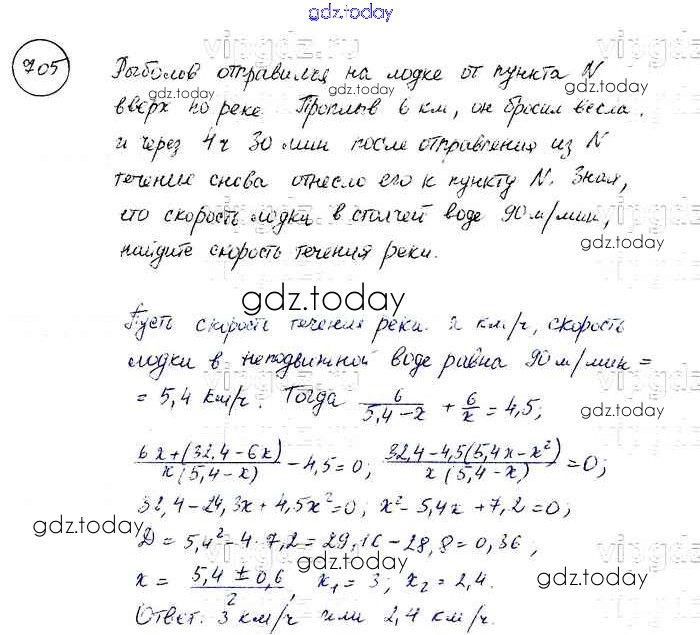 gdz.today
705
Рыболов отправился на лодке от пункта N
вверх по реке. Проплыв 6 км, он бросил весла,
и через 4ч 30 мин после отправления из N
течение снова отнесло его к пункту N. Зная,
что скорость лодки в стоячей воде 90 м/мин,
найдите скорость течения реки.
gdz.today
Пусть скорость течения реки x км/ч, скорость
лодки в неподвижной воде равна 90 м/мин =
= 5,4 км/ч. Тогда 6/(5,4-x) + 6/x = 4,5;
(6x+(32,4-6x))/(x(5,4-x)) - 4,5=0; (32,4-4,5(5,4x-x²))/(x(5,4-x)) =0;
32,4-24,3x+4,5x²=0; x²-5,4x+7,2=0;
D = 5,4²-4·7,2=29,16-28,8=0,36;
x = (5,4±0,6)/2, x₁=3; x₂=2,4.
Ответ: 3 км/ч или 2,4 км/ч.